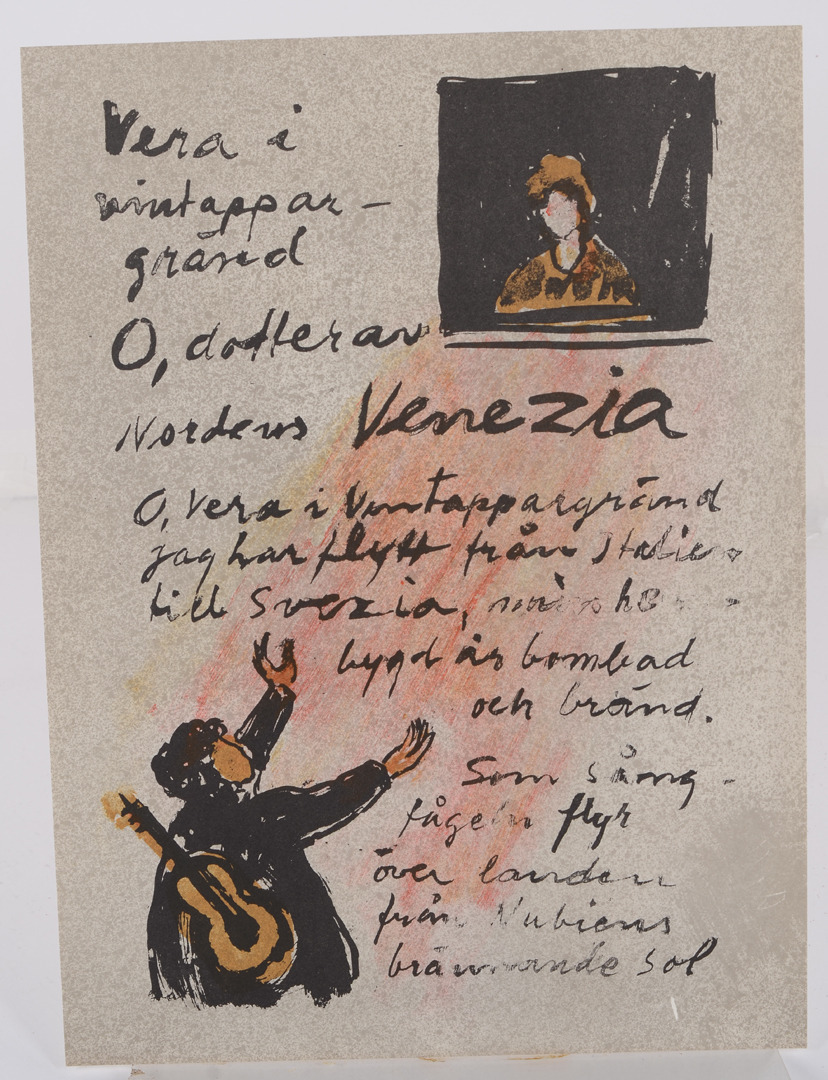 Vera i
vintappar-
gränd
O, dotter av
Nordens Venezia
O, Vera i Vintappargränd
jag har flytt från Italien
till Svezia, min hem-
bygd är bombad
och bränd.
Som sång-
fågeln flyr
över landen
från Nubiens
brännande sol